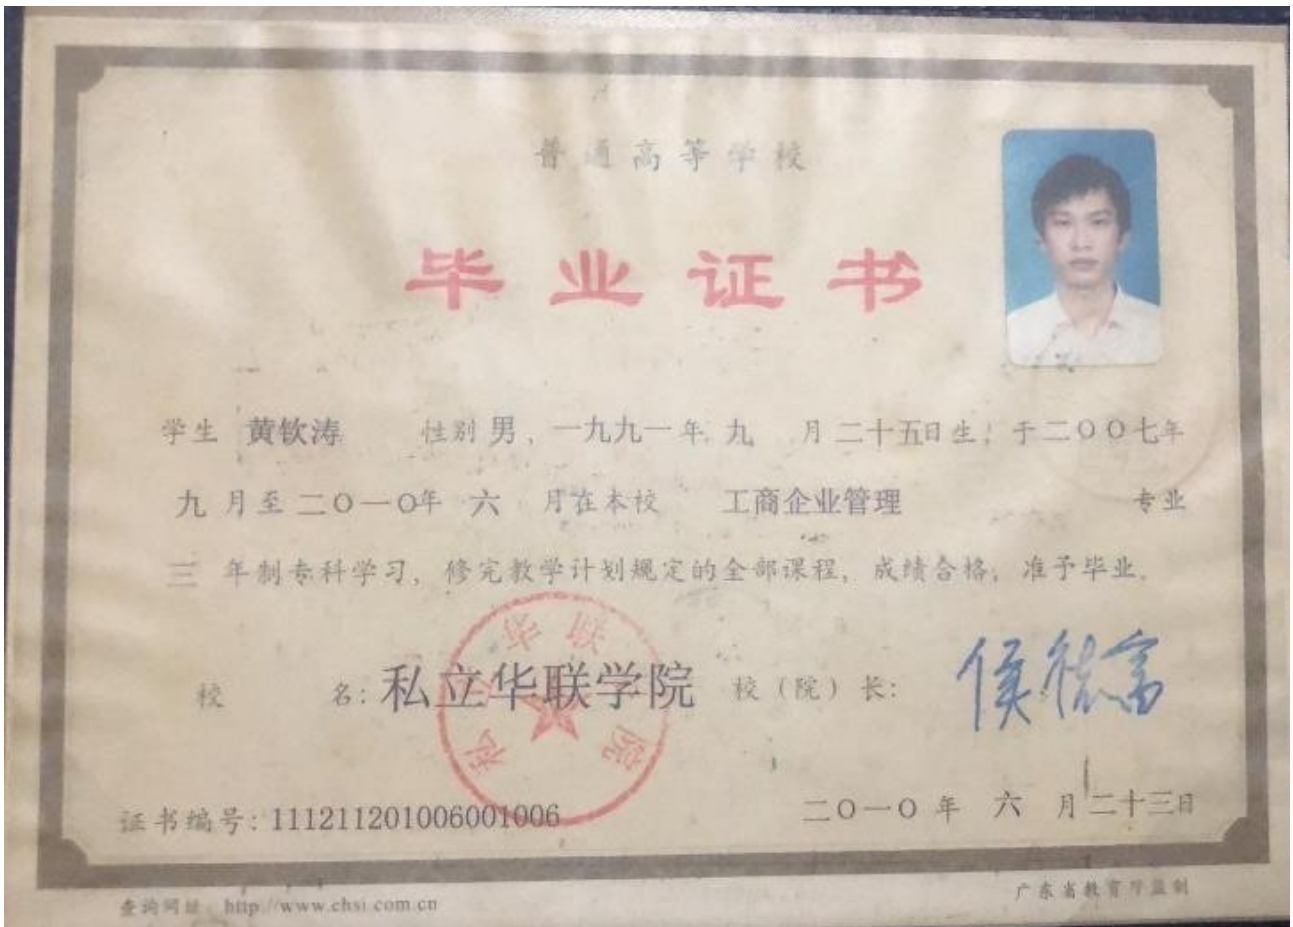 普通高等学校
毕业证书
学生 黄钦涛 性别 男，一九九一年 九 月二十五日生，于二〇〇七年
九 月至 二〇一〇年 六 月在本校 工商企业管理 专业
三 年制专科学习，修完教学计划规定的全部课程，成绩合格，准予毕业。
校 名：私立华联学院 校（院）长：侯德富
私立华联学院
证书编号：111211201006001006 二〇一〇 年 六 月二十三日
查询网址：http://www.chsi.com.cn 广东省教育厅监制